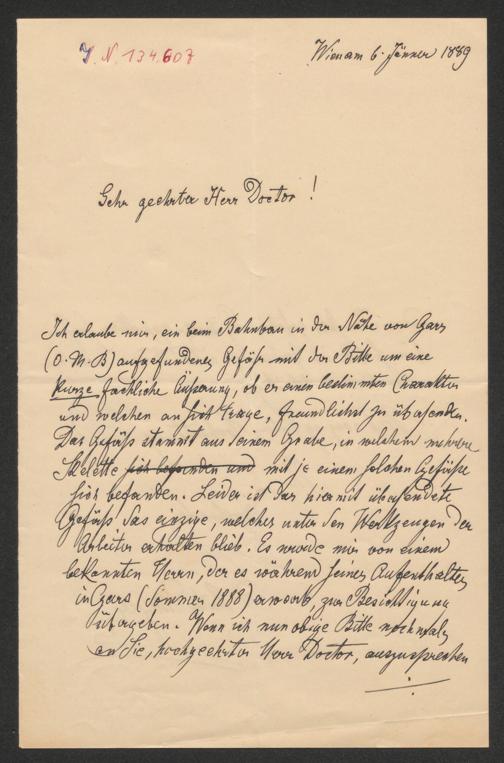 J. N. 134.607
Wien am 6. Jänner 1889
Sehr geehrter Herr Doctor!
Ich erlaube mir, ein beim Bahnbau in der Nähe von Gars
(O. M. B) aufgefundenes Gefäß mit der Bitte um eine
kurze fachliche Äußerung, ob es einen bestimmten Charakter
und welchen an sich trage, freundlichst zu übersenden.
Das Gefäß stammt aus einem Grabe, in welchem mehrere
Skelette sich befanden und mit je einem solchen Gefäße
sich befanden. Leider ist das hiermit übersendete
Gefäß das einzige, welches unter den Werkzeugen der
Arbeiter erhalten blieb. Es wurde mir von einem
bekannten Herrn, der es während seines Aufenthaltes
in Gars (Sommer 1888) erwarb zur Besichtigung
übergeben. Wenn ich nun obige Bitte nochmals
an Sie, hochgeehrter Herr Doctor, auszusprechen